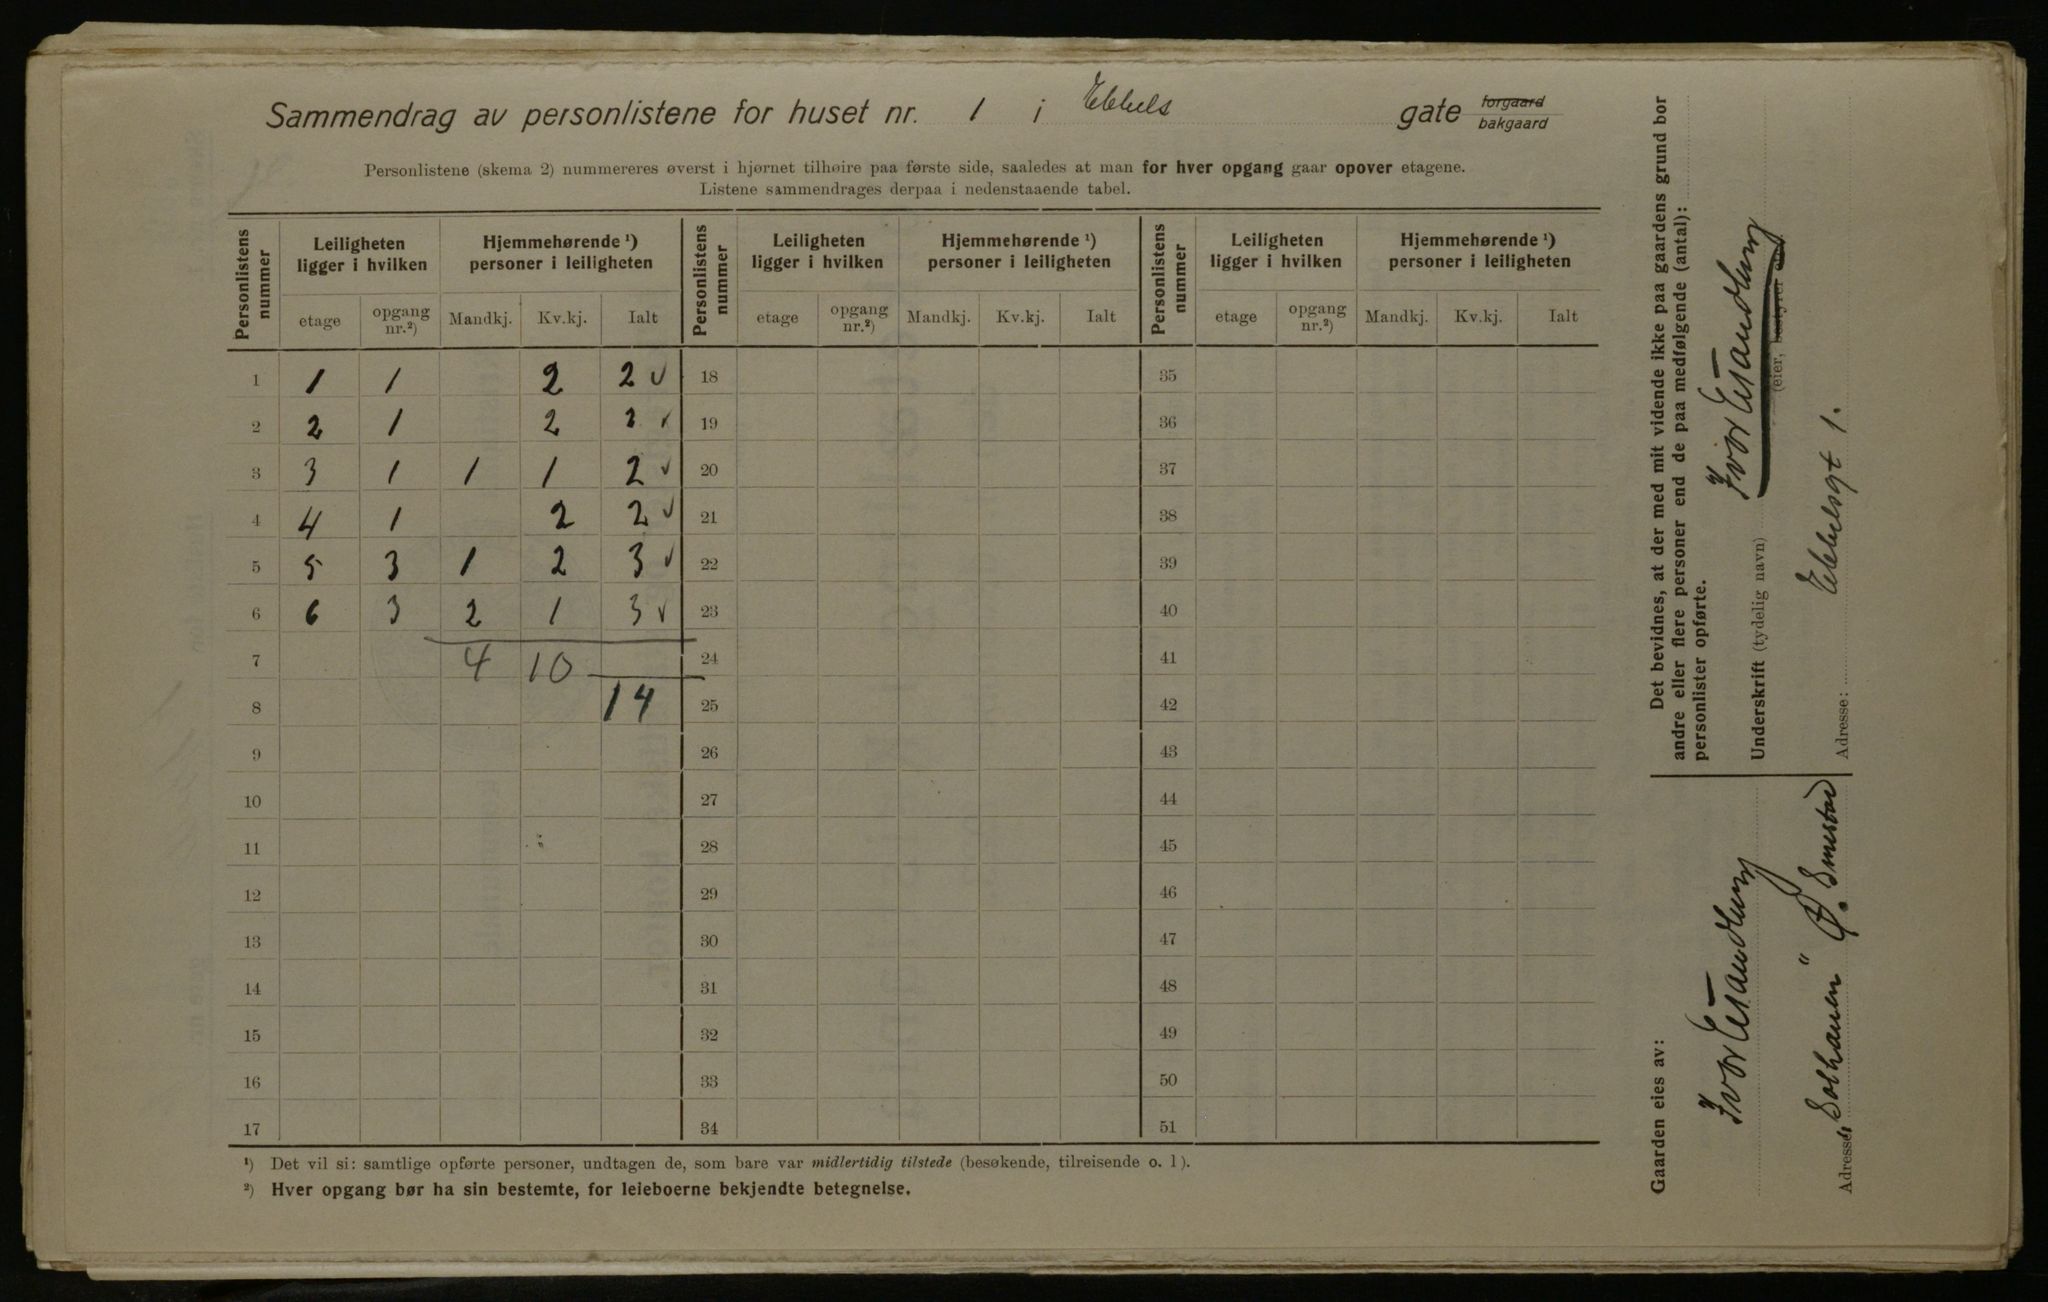 Sammendrag av personlistene for huset nr. 1 i Ebbels gate forgaard bakgaard
Personlistene (skema 2) nummereres øverst i hjørnet tilhøire paa første side, saaledes at man for hver opgang gaar opover etagene.
Listene sammendrages derpaa i nedenstaaende tabel.
Personlistens nummer | Leiligheten ligger i hvilken | Hjemmehørende ¹) personer i leiligheten | Personlistens nummer | Leiligheten ligger i hvilken | Hjemmehørende ¹) personer i leiligheten | Personlistens nummer | Leiligheten ligger i hvilken | Hjemmehørende ¹) personer i leiligheten
etage | opgang nr.²) | Mandkj. | Kv.kj. | Ialt | etage | opgang nr.²) | Mandkj. | Kv.kj. | Ialt | etage | opgang nr.²) | Mandkj. | Kv.kj. | Ialt
1 | 1 | 1 | | 2 | 2 ✓ | 18 | 35
2 | 2 | 1 | | 2 | 2 ✓ | 19 | 36
3 | 3 | 1 | 1 | 1 | 2 ✓ | 20 | 37
4 | 4 | 1 | | 2 | 2 ✓ | 21 | 38
5 | 5 | 3 | 1 | 2 | 3 ✓ | 22 | 39
6 | 6 | 3 | 2 | 1 | 3 ✓ | 23 | 40
7 | | | 4 | 10 | | 24 | 41
8 | | | | | 14 | 25 | 42
9 | 26 | 43
10 | 27 | 44
11 | 28 | 45
12 | 29 | 46
13 | 30 | 47
14 | 31 | 48
15 | 32 | 49
16 | 33 | 50
17 | 34 | 51
¹) Det vil si: samtlige opførte personer, undtagen de, som bare var midlertidig tilstede (besøkende, tilreisende o. l).
²) Hver opgang bør ha sin bestemte, for leieboerne bekjendte betegnelse.
Det bevidnes, at der med mit vidende ikke paa gaardens grund bor
andre eller flere personer end de paa medfølgende (antal):
personlister opførte.
Underskrift (tydelig navn)
(eier, bestyrer
Adresse: Ebbelsgt 1.
Gaarden eies av:
Adresse: "Solhauen" Ø. Smestad